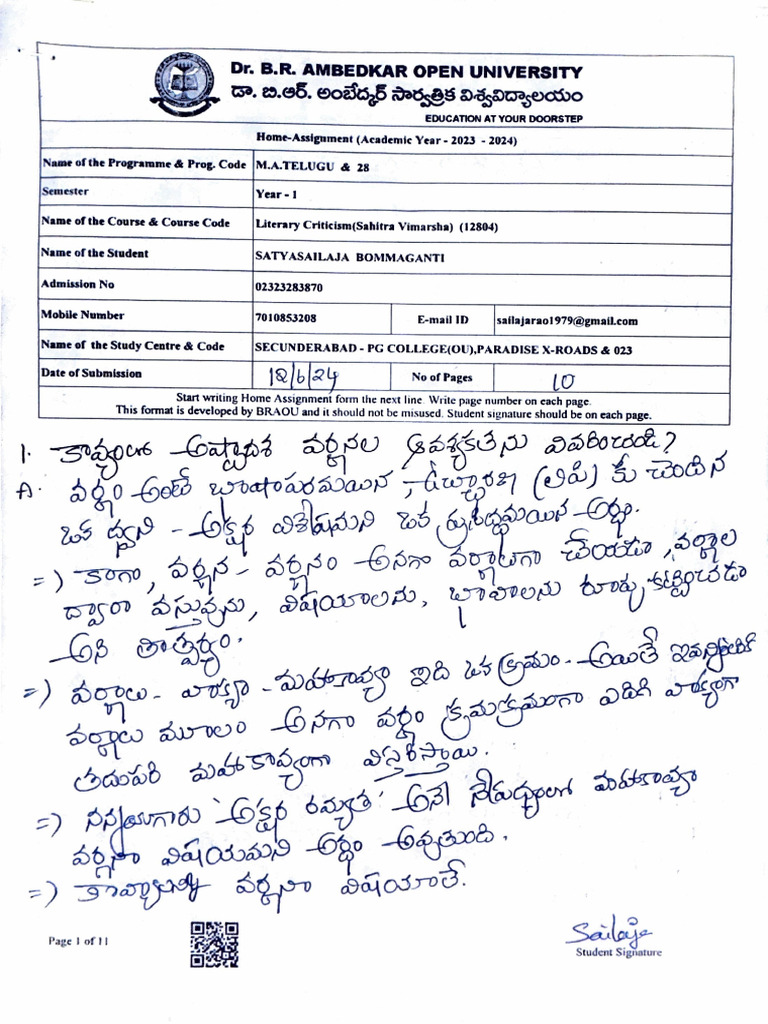 Dr. B.R. AMBEDKAR OPEN UNIVERSITY
డా. బి.ఆర్. అంబేద్కర్ సార్వత్రిక విశ్వవిద్యాలయం
EDUCATION AT YOUR DOORSTEP
Home-Assignment (Academic Year - 2023 - 2024)
Name of the Programme & Prog. Code M.A.TELUGU & 28
Semester Year - 1
Name of the Course & Course Code Literary Criticism(Sahitra Vimarsha) (12804)
Name of the Student SATYASAILAJA BOMMAGANTI
Admission No 02323283870
Mobile Number 7010853208 E-mail ID sailajarao1979@gmail.com
Name of the Study Centre & Code SECUNDERABAD - PG COLLEGE(OU),PARADISE X-ROADS & 023
Date of Submission 18/6/24 No of Pages 10
Start writing Home Assignment form the next line. Write page number on each page.
This format is developed by BRAOU and it should not be misused. Student signature should be on each page.
1. కావ్యంలో అష్టాదశ వర్ణనల ఆవశ్యకతను వివరించండి?
A. వర్ణం అంటే భాషాపరమయిన, (లిపి) కు చెందిన
ఒక ధ్వని - అక్షర విశేషమని ఒక ప్రసిద్ధమయిన అర్థం.
=) కాగా, వర్ణన - వర్ణనం అనగా చేయడం, వర్ణాల
ద్వారా వస్తువును, విషయాలను, భావాలను రూపు కట్టించడం
అని తాత్పర్యం.
=) వర్ణాలు - వాక్యం - మహాకావ్యం ఇది ఒక క్రమం. అయితే
వర్ణాలు మూలం అనగా వర్ణం క్రమక్రమంగా ఎదిగి వాక్యంగా
తదుపరి మహాకావ్యంగా విస్తరిస్తాయి.
=) నన్నయగారు 'అక్షర రమ్యత' అనే నేపథ్యంలో మహాకావ్యం
వర్ణనా విషయమని అర్థం అవుతుంది.
=) కావ్యాలన్నీ వర్ణనా విషయాలే.
Page 1 of 11
Sailaja
Student Signature